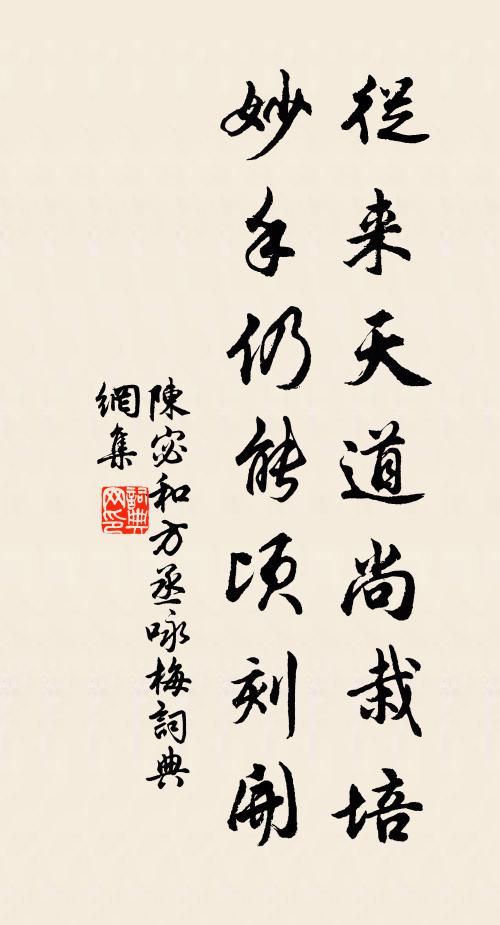 從来天道尚栽培
妙手仍能頃刻開
陳宓和方丞咏梅詞典
網集
詞典
网印